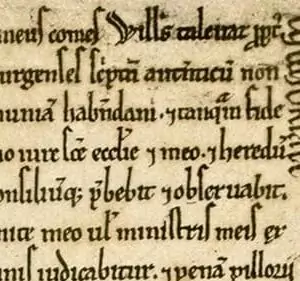 neus comes Will's taleuat
urgenses sc'ptū autenticū non
humā habūdani. ⁊ tanq̄m fide
o iure s̄ce eccl'ie ⁊ meo. ⁊ heredū
onsiliūq; p̄bebit ⁊ obseruabit.
nite meo ul' ministris meis
nis iudicabitur. ⁊ penā pillorii